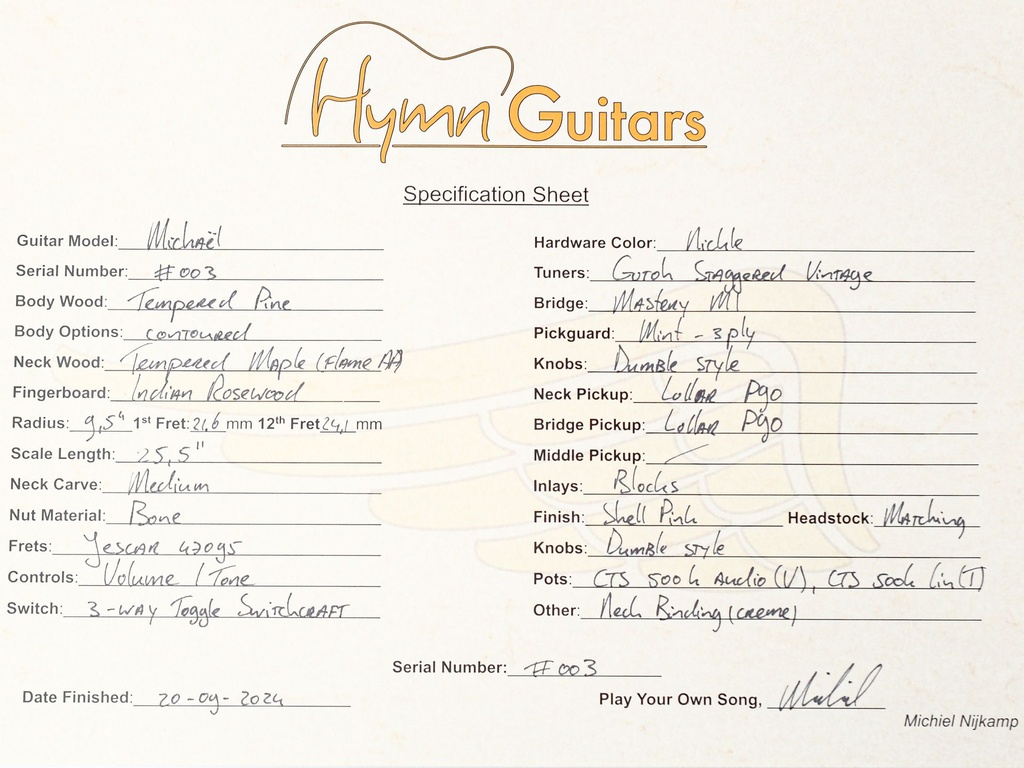 Hymn Guitars
Specification Sheet
Guitar Model: Michaël
Serial Number: #003
Body Wood: Tempered Pine
Body Options: contoured
Neck Wood: Tempered Maple (Flame AA)
Fingerboard: Indian Rosewood
Radius: 9,5" 1st Fret: 21,6 mm 12th Fret 24,1 mm
Scale Length: 25,5"
Neck Carve: Medium
Nut Material: Bone
Frets: Jescar 47095
Controls: Volume / Tone
Switch: 3-way Toggle Switchcraft
Hardware Color: Nickle
Tuners: Gotoh Staggered Vintage
Bridge: Mastery M1
Pickguard: Mint - 3ply
Knobs: Dumble style
Neck Pickup: Lollar P90
Bridge Pickup: Lollar P90
Middle Pickup: /
Inlays: Blocks
Finish: Shell Pink Headstock: Matching
Knobs: Dumble style
Pots: CTS 500k Audio (V), CTS 500k Lin (T)
Other: Neck Binding (creme)
Serial Number: #003
Date Finished: 20-09-2024
Play Your Own Song, Michiel
Michiel Nijkamp